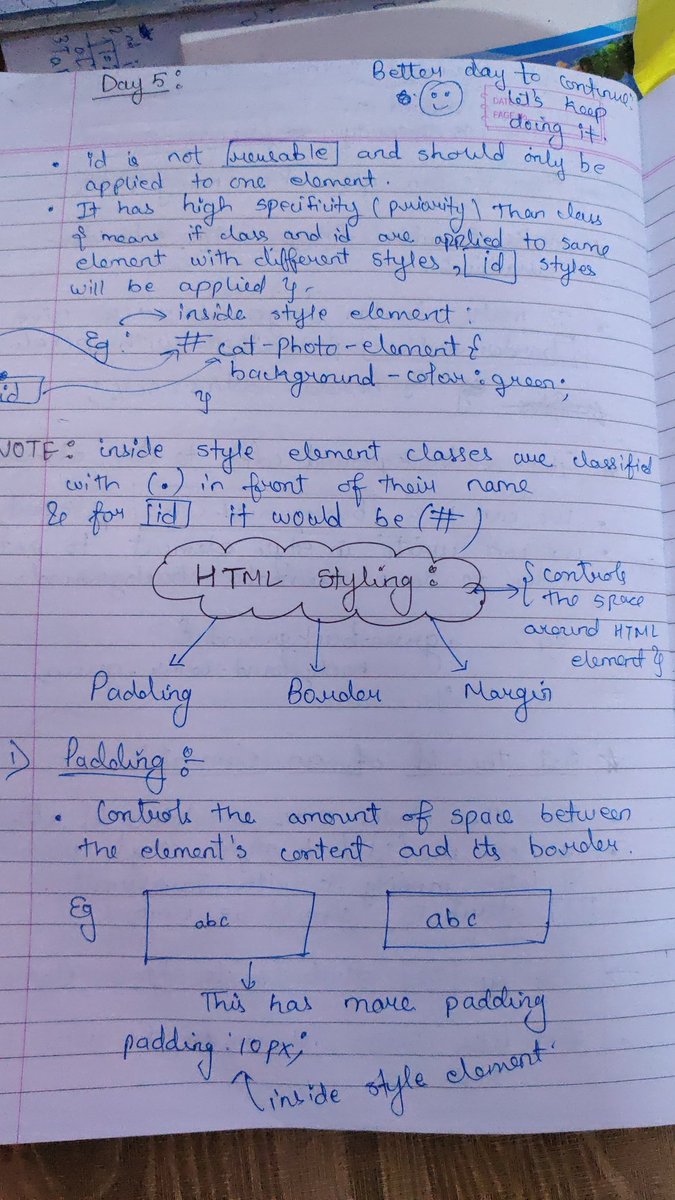 Day 5:
Better day to continue:
Let's keep
doing it.
• id is not reusable and should only be
applied to one element.
• It has high specificity (priority) than class
{ means if class and id are applied to same
element with different styles, id styles
will be applied }.
inside style element:
Eg: # cat-photo-element {
id
background-color: green;
}
NOTE: inside style element classes are classified
with (.) in front of their name
& for id it would be (#)
HTML Styling:
{ controls
the space
around HTML
element }
Padding Border Margin
1) Padding :-
• Controls the amount of space between
the element's content and its border.
Eg abc abc
This has more padding
padding: 10px;
inside style element